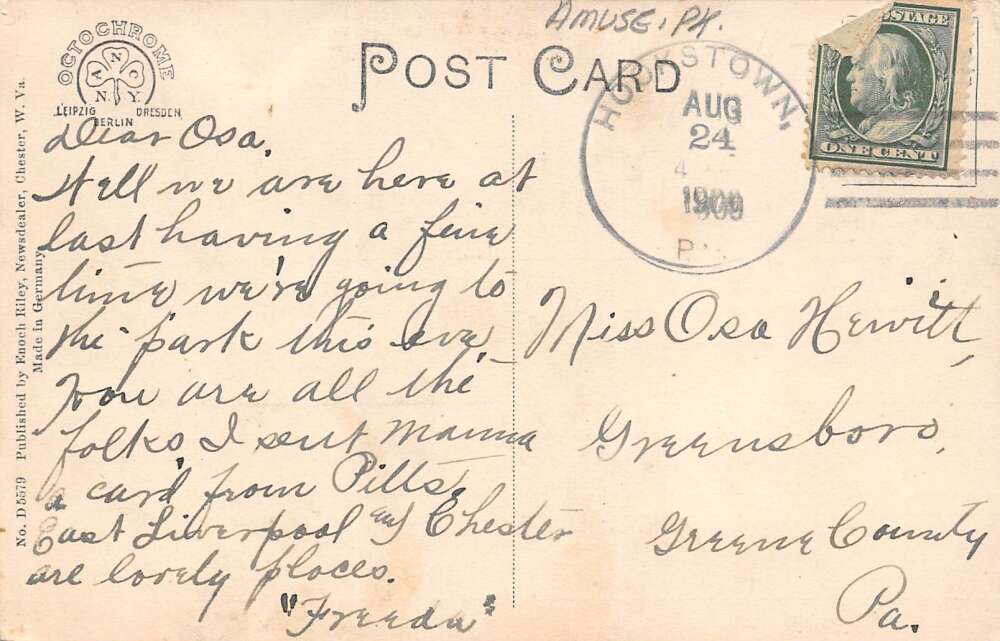 AMUSE. PK.
OCTOCHROME
ANC
N.Y.
LEIPZIG DRESDEN
BERLIN
POST CARD
HOOKSTOWN,
AUG
24
4
1909
PA.
POSTAGE
ONE CENT
No. D 5579 Published by Enoch Riley, Newsdealer, Chester, W. Va.
Made in Germany
Dear Osa,
Well we are here at
last having a fine
time we're going to
the park this eve
How are all the
folks, I sent Mamma
a card from Pitts.
East Liverpool and Chester
are lovely places.
"Freeda"
Miss Osa Hewitt,
Greensboro,
Greene County
Pa.